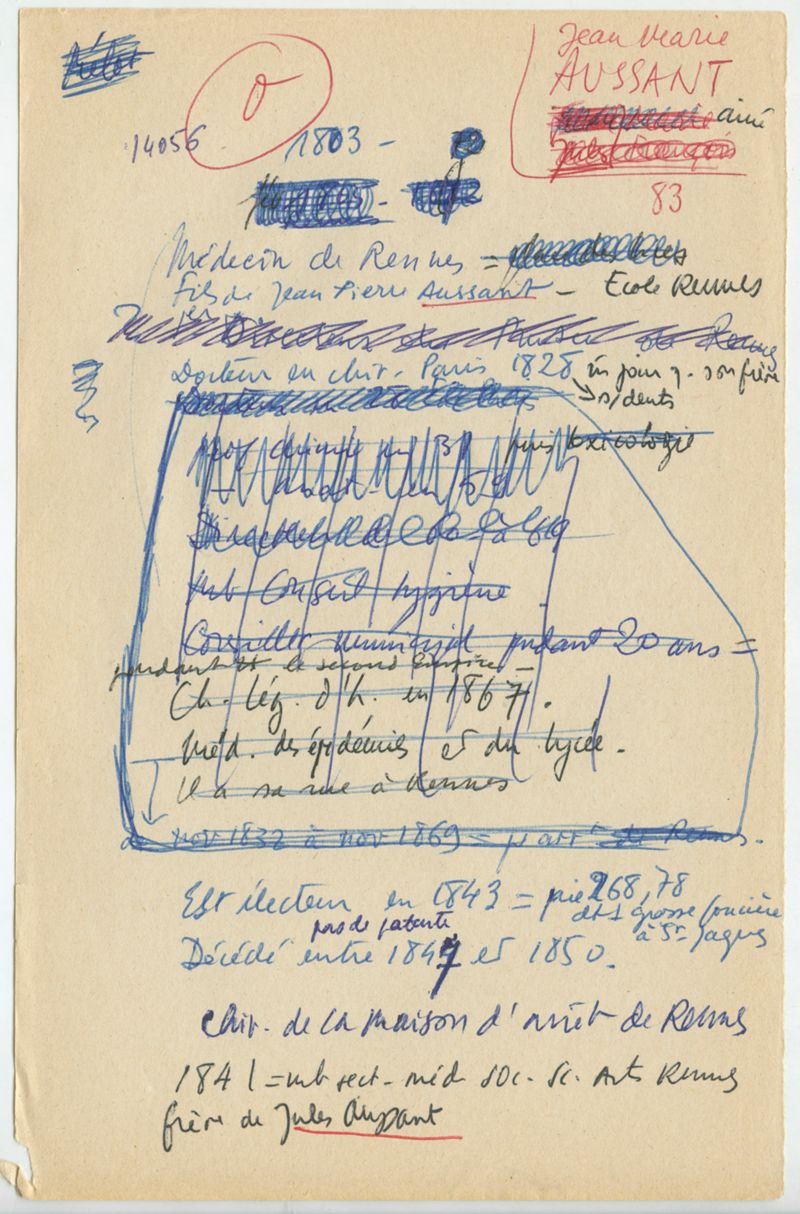 Jean Marie
AUSSANT
aîné
14056
0
1803 -
83
Médecin de Rennes =
Fils de Jean Pierre Aussant - Ecole Rennes
Rennes
Docteur en chir. Paris 1828 un jour 7. son frère
s/dents
prof chimie en puis toxicologie
mb Conseil hygiène
Conseiller municipal pendant 20 ans =
pendant tt le second Empire -
Ch. lég. d'h. en 1867.
Méd. des épidémies et du lycée.
Il a sa rue à Rennes
de nov 1832 à nov 1869 = de Rennes.
Est électeur en 1843 = paie 268,78
dt 1 grosse foncière
à St Jaques
pas de patente
Décédé entre 1847 et 1850.
Chir. de la maison d'arrêt de Rennes
1841 = mb sect. méd soc. Sc. Arts Rennes
frère de Jules Aussant